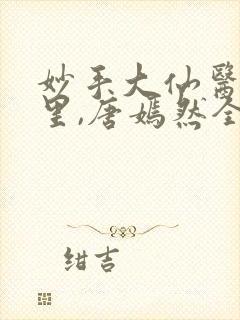 妙手大仙醫
里,唐嫣然全
绀吉